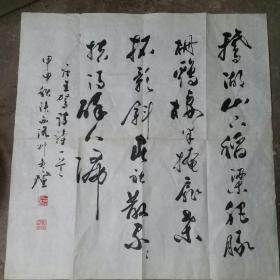 鹅湖山下稻粱肥豚
栅鸡栖半掩扉桑
柘影斜春社散家
扶得醉人归
王驾诗一首
甲申秋